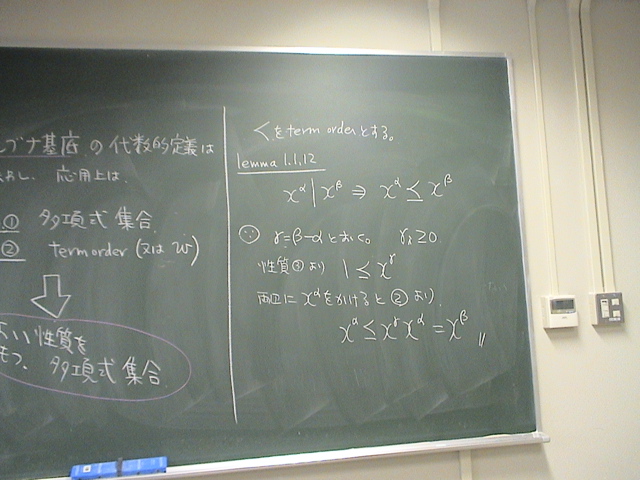 ブナ基底の代数的定義は
応用上は、
① 多項式集合
② term order (又は w)
いい性質を
もつ、多項式集合
<をterm orderとする。
lemma 1.1.12
x^α | x^β ⇒ x^α ≤ x^β
∵ γ=β-α とおくc。 γ_i ≥ 0
性質③より 1 ≤ x^γ
両辺に x^α をかけると②より、
x^α ≤ x^γ x^α = x^β 〃